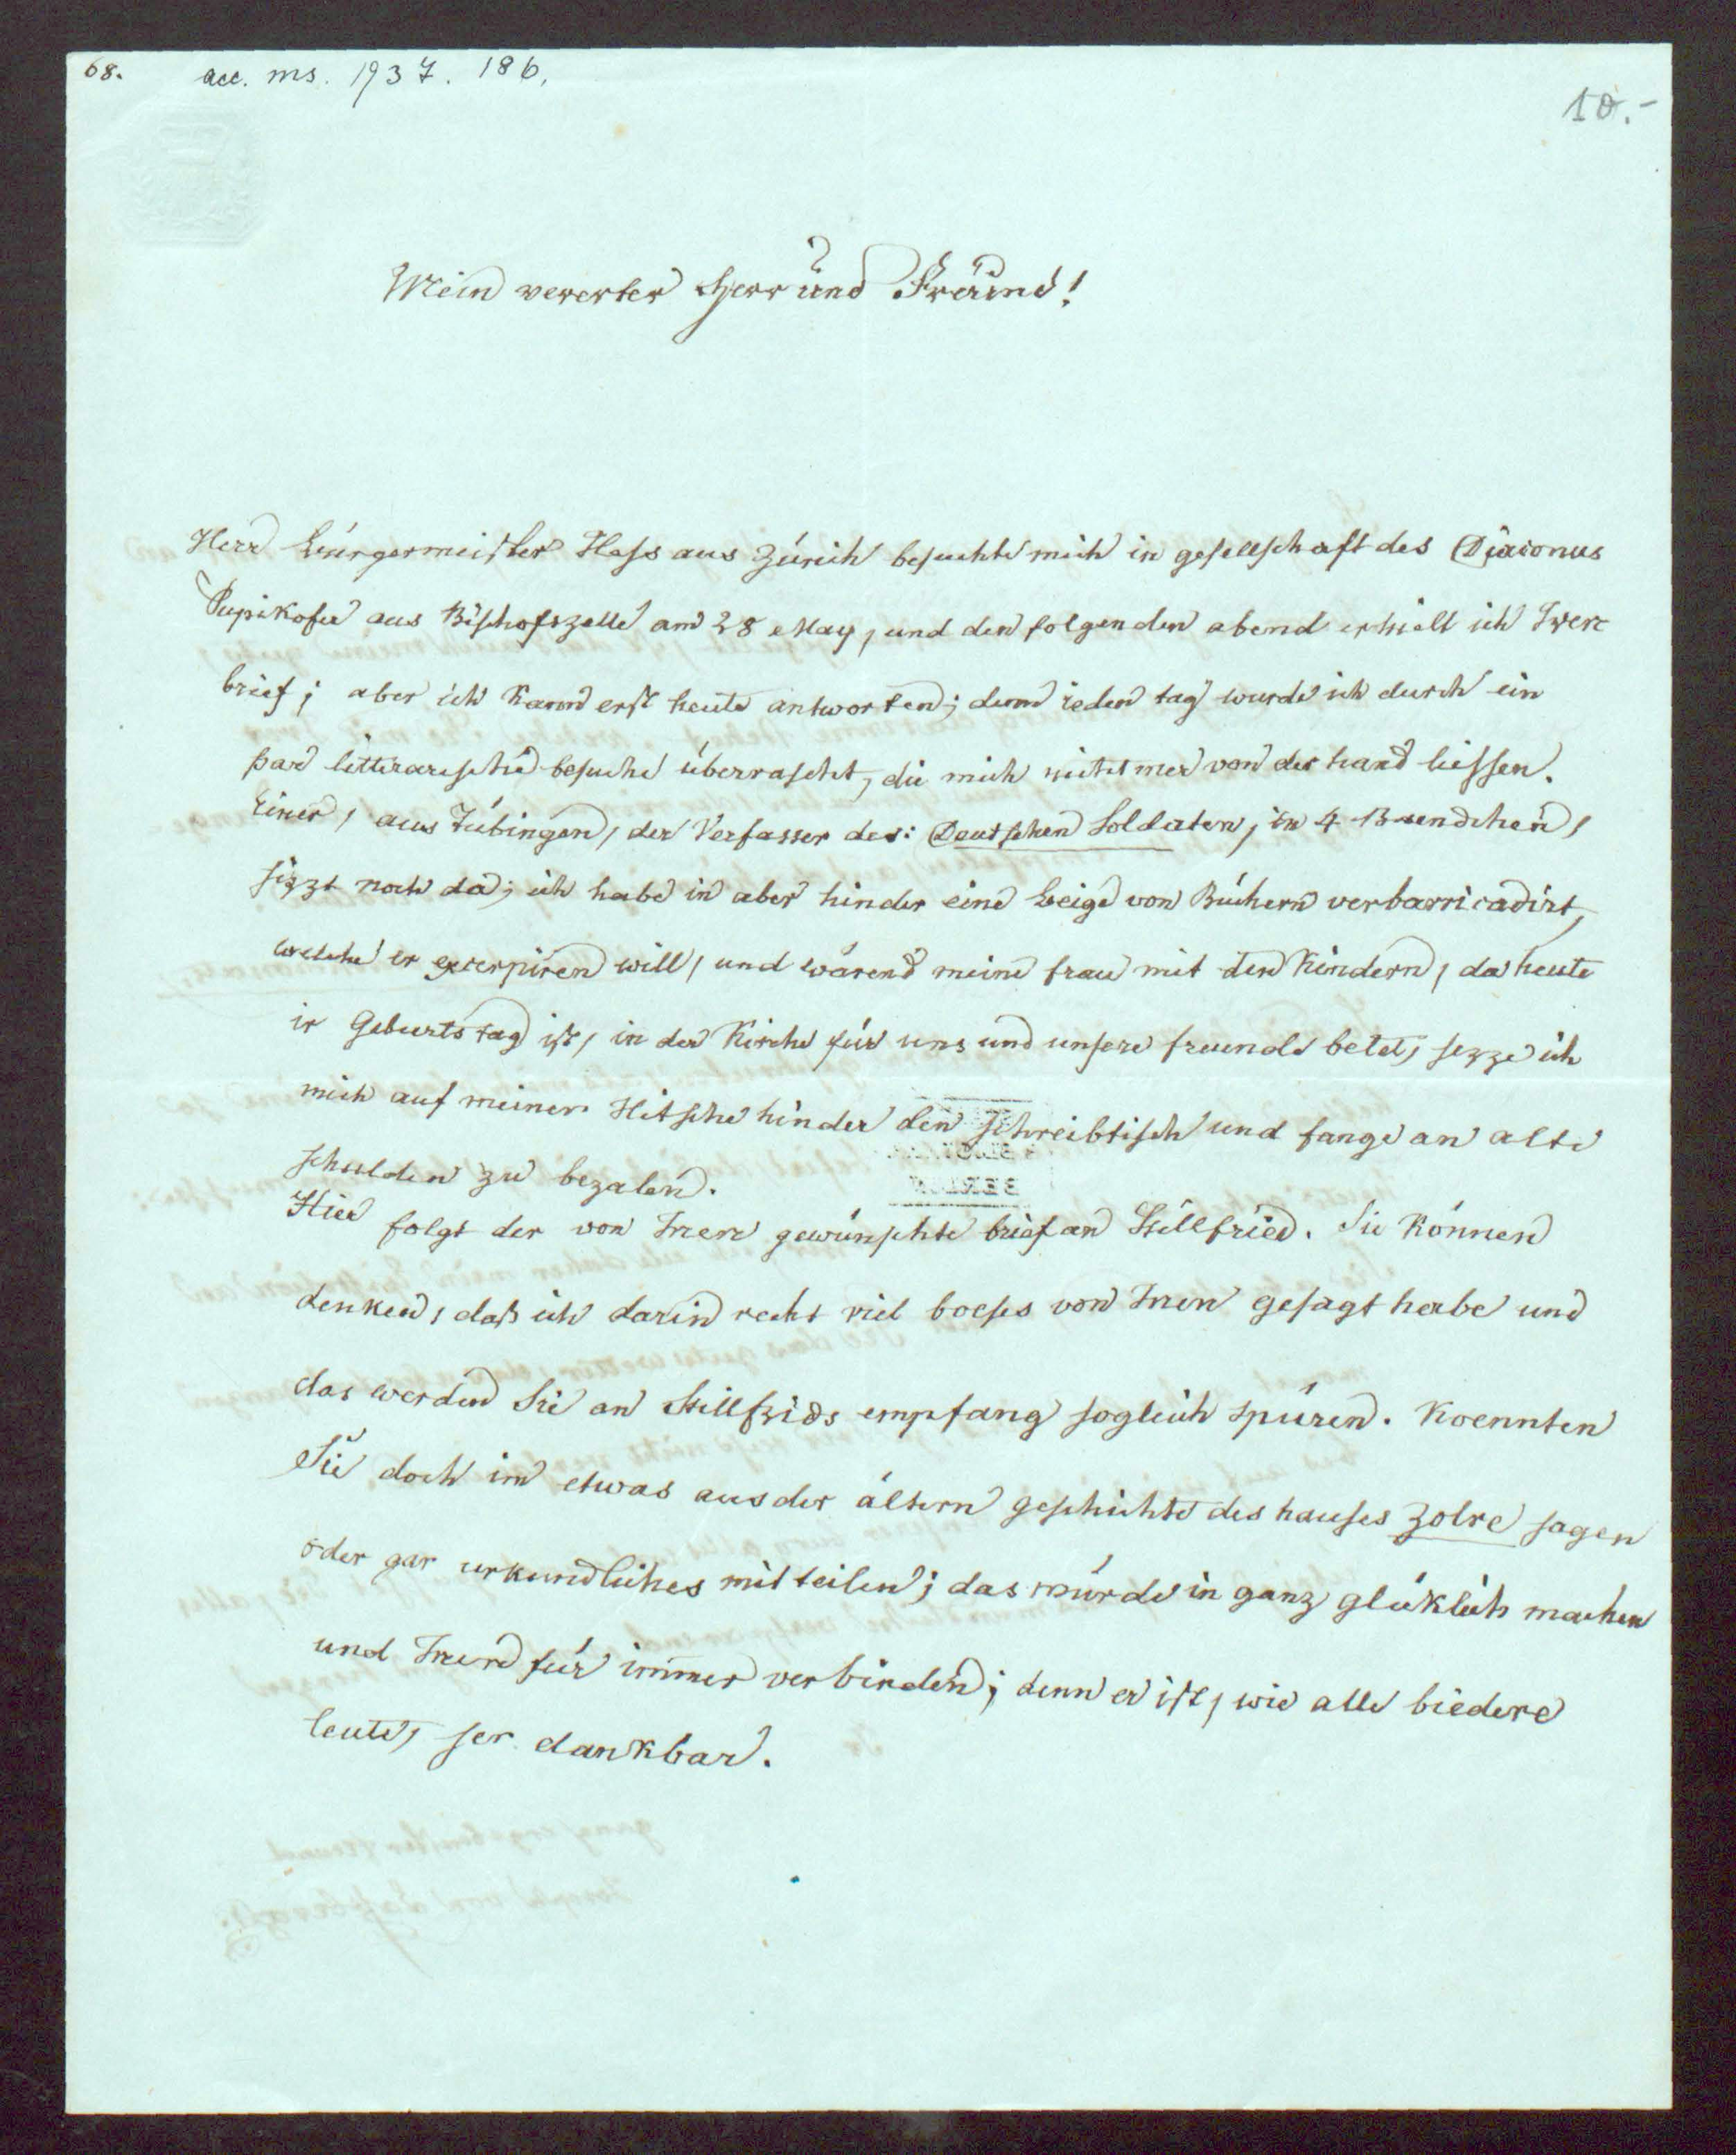 68. acc. ms. 1937. 186.
10.-
Mein vererter Herr und Freund!
Herr Bürgermeister Hess aus Zürich besuchte mich in gesellschaft des Diaconus
Pupikofer aus Bischofszelle am 28 May, und den folgenden abend erhielt ich Iren
brief; aber ich kann erst heute antworten; denn ieden tag wurde ich durch ein
par litterarische besuche überrascht, die mich nicht mer von der hand liessen.
Einer, aus Tübingen, der Verfasser des: Deutschen Soldaten, in 4 Baendchen,
sizzt noch da; ich habe in aber hinder eine Beige von Büchern verbarricadirt,
welche er excerpiren will, und wärend meine frau mit den Kindern, da heute
ir Geburtstag ist, in der Kirche für uns und unsere freunde betet, sezze ich
mich auf meiner Hitsche hinder den schreibtisch und fange an alte
schulden zu bezalen.
Hier folgt der von Inen gewünschte brief an Stillfried. Sie können
denken, daß ich darin recht viel boeses von Inen gesagt habe und
das werden Sie an Stillfrids empfang sogleich spüren. Koennten
Sie doch im etwas aus der ältern geschichte des hauses Zolre sagen
oder gar urkundliches mitteilen; das würde in ganz glüklich machen
und Inen für immer verbinden; denn er ist, wie alle biedere
leute, ser dankbar.